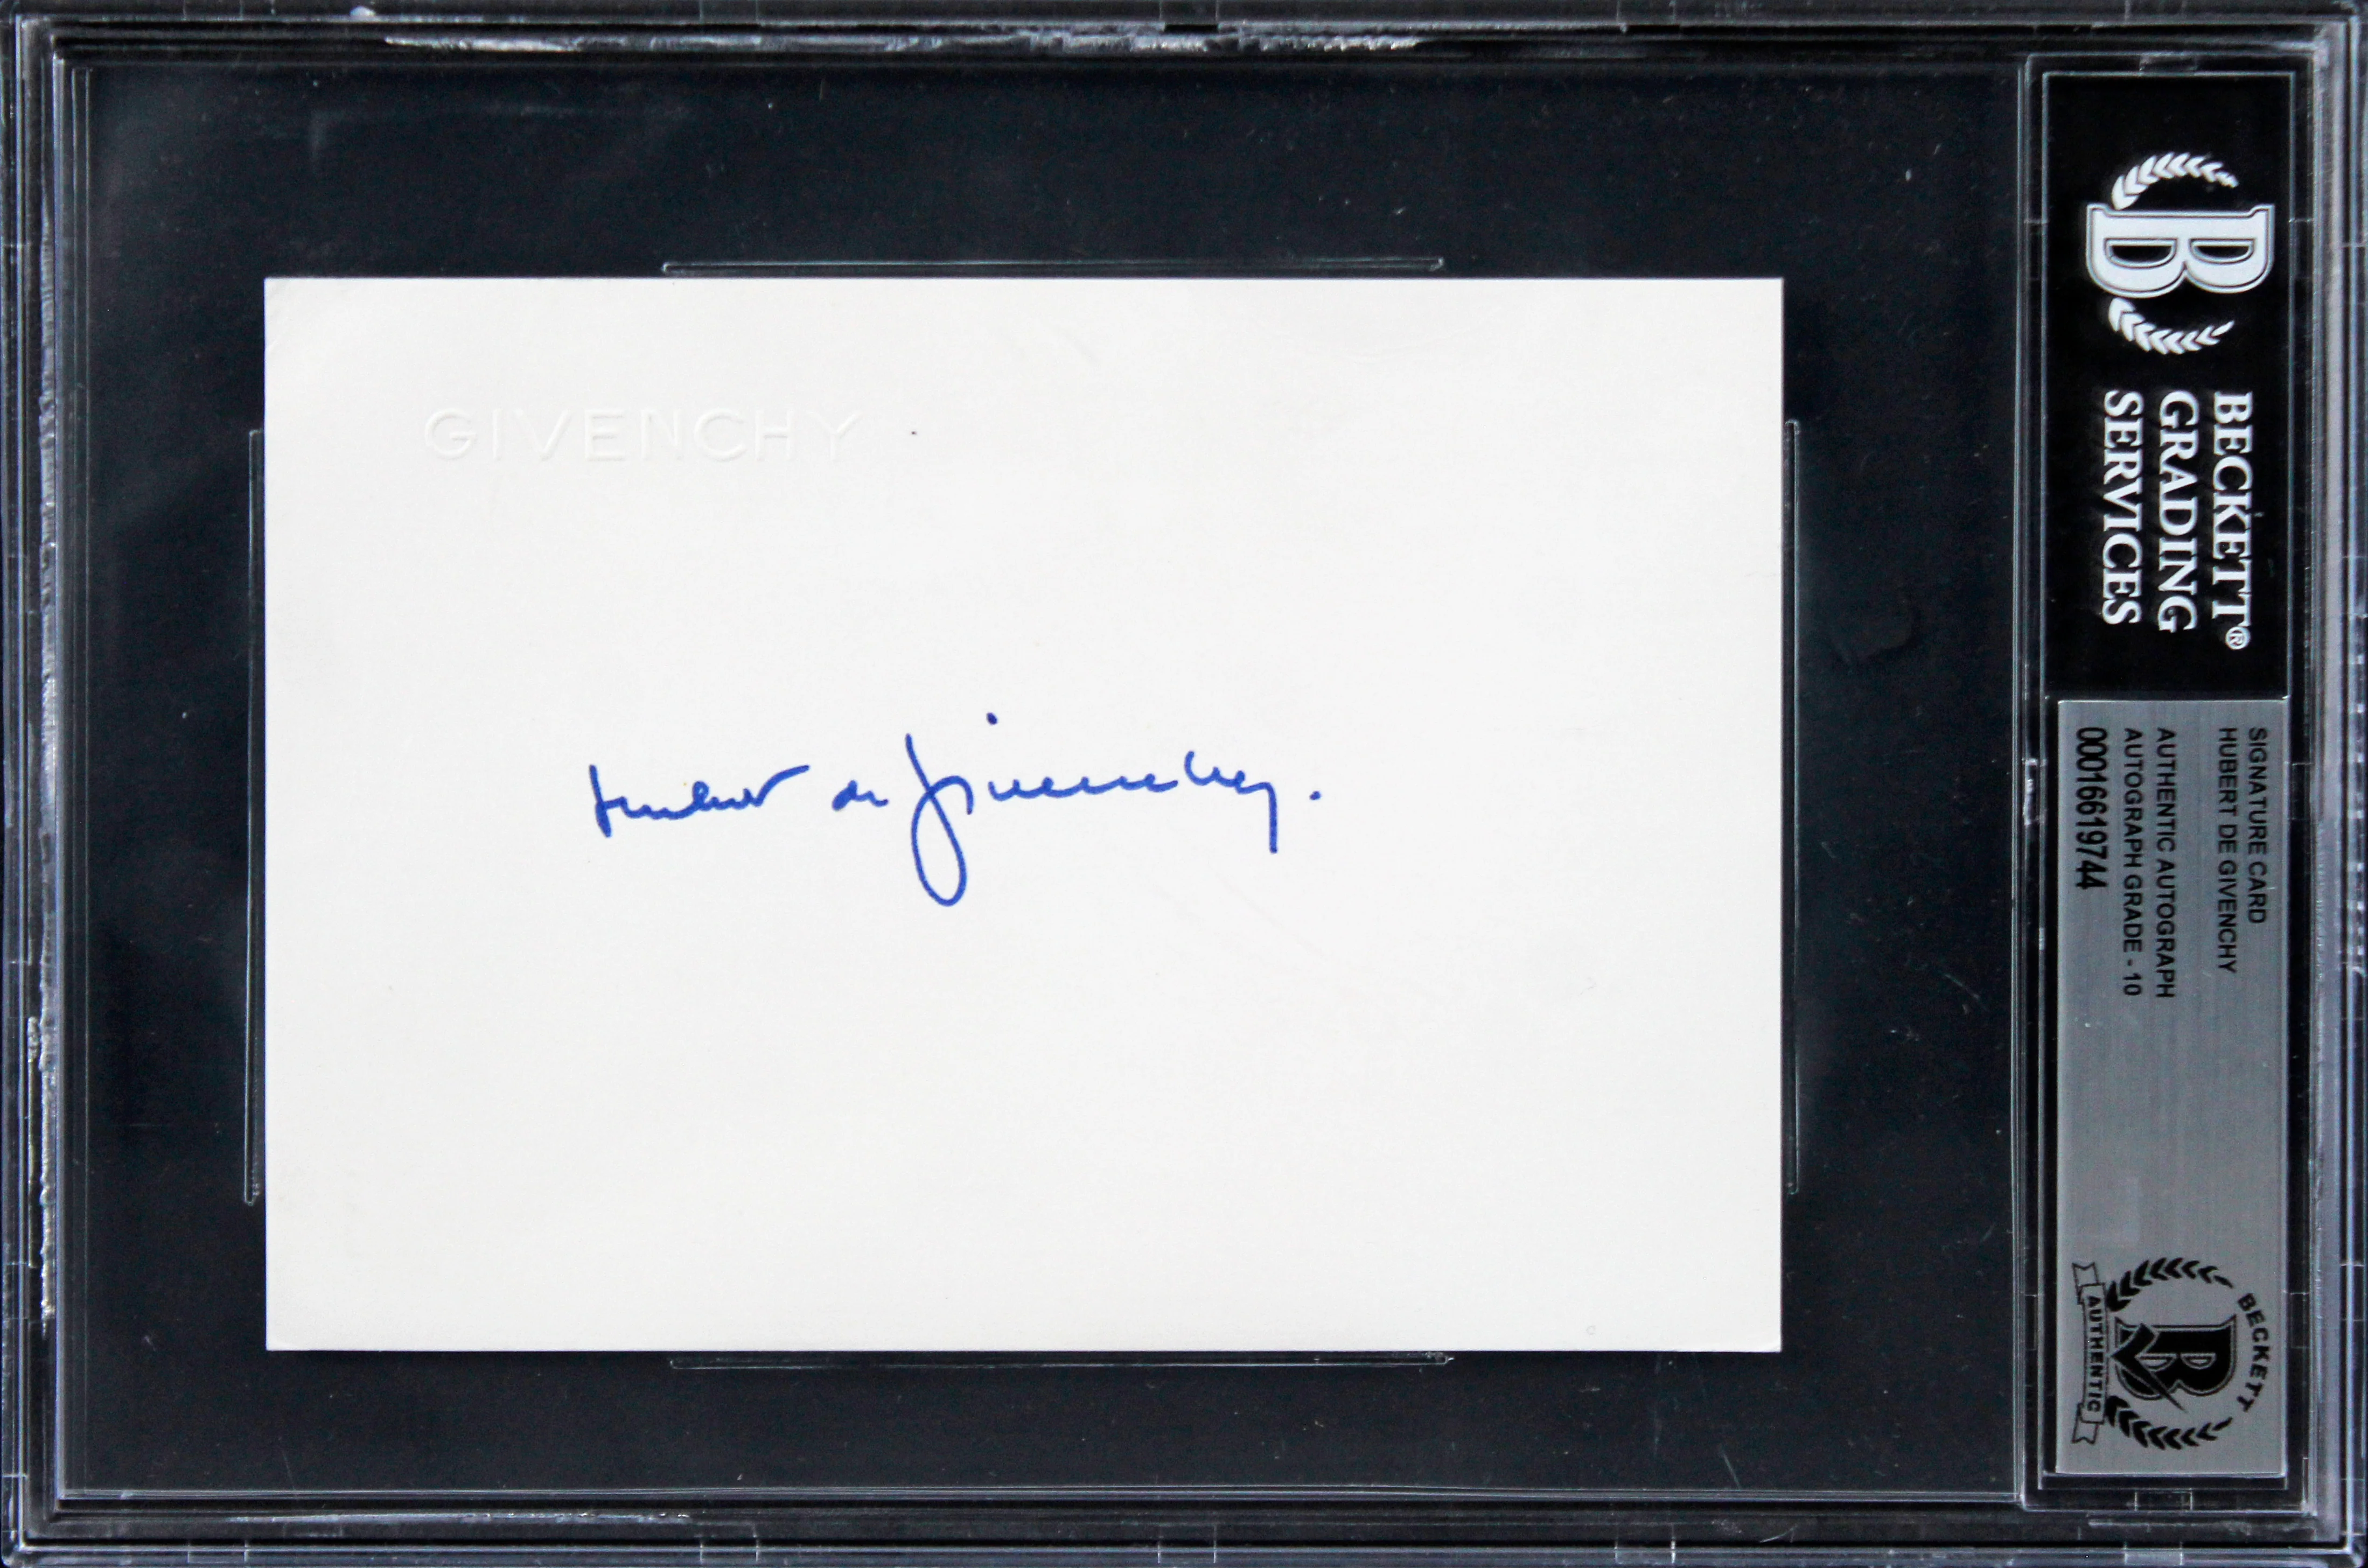 GIVENCHY
Hubert de Givenchy.
BECKETT®
GRADING
SERVICES
SIGNATURE CARD
HUBERT DE GIVENCHY
AUTHENTIC AUTOGRAPH
AUTOGRAPH GRADE - 10
00016619744
BECKETT
B
AUTHENTIC